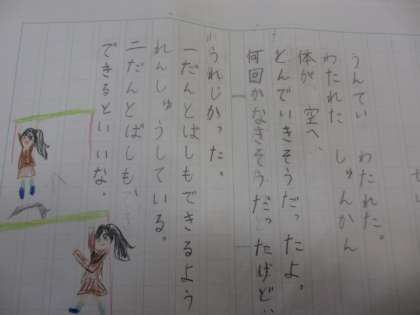 うんてい　わたれた。
わたれた　しゅんかん
体が　空へ、
とんでいきそうだったよ。
何回かなきそうだったけど、
うれしかった。
一だんとばしもできるよう
れんしゅうしている。
二だんとばしも、
できるといいな。